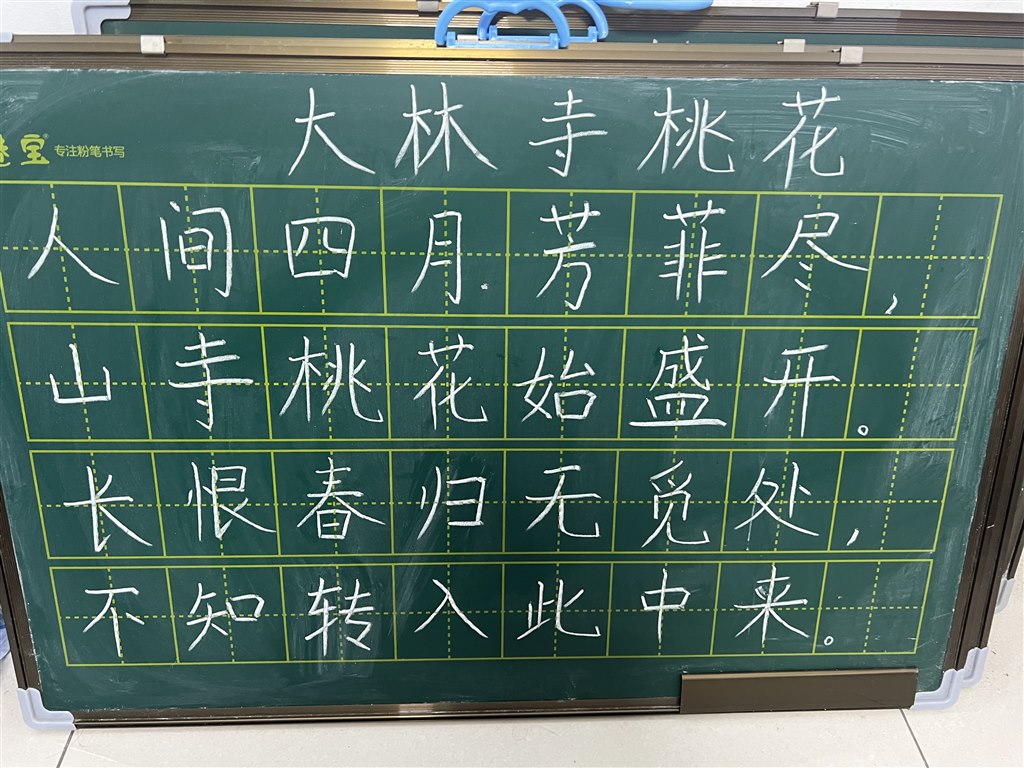 大林寺桃花
宝 专注粉笔书写
人间四月芳菲尽，
山寺桃花始盛开。
长恨春归无觅处，
不知转入此中来。